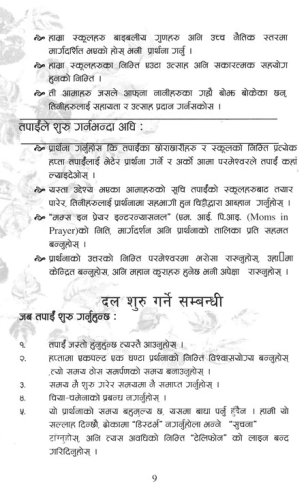 हाम्रा स्कूलहरु बाइबलीय गुणहरु अनि उच्च नैतिक स्तरमा
मार्गदर्शित भएको होस् भनी प्रार्थना गर्नु ।
हाम्रा स्कूलहरुका निम्ति एउटा उत्साह अनि सकारात्मक सहयोग
हुनको निम्ति ।
ती आमाहरु जसले आफ्ना नानीहरुका गह्रौ बोझ बोकेका छन्,
तिनीहरुलाई सहायता र उत्साह प्रदान गर्नसकोस ।
तपाईले शुरु गर्नभन्दा अघि :
प्रार्थना गर्नुहोस कि तपाईका छोराछोरीहरु र स्कूलको निम्ति प्रत्येक
हप्ता तपाईलाई भेटेर प्रार्थना गर्ने र अर्को आमा परमेश्वरले तपाई कहाँ
ल्याइदेओस् ।
यस्ता उद्देश्य भएका आमाहरुको सूचि तपाईको स्कूलहरुबाट तयार
पारेर, तिनीहरुलाई प्रार्थनामा सहभागी हुन चिट्ठीद्वारा आब्हान गर्नुहोस् ।
"मम्स इन प्रेयर इन्टरन्यासनल" (एम. आई. पि.आइ. (Moms in
Prayer)को निति, मार्गदर्शन अनि प्रार्थनाको तालिका प्रति सहमत
बन्नुहोस् ।
प्रार्थनाको उत्तरको निम्ति परमेश्वरमा भरोसा राख्नुहोस्, उहाँमा
केन्द्रित बन्नुहोस्, अनि महान कुराहरु हुनेछ भनी अपेक्षा राख्नुहोस् ।
दल शुरु गर्ने सम्बन्धी
जब तपाई शुरु गर्नुहुन्छ :
१. तपाई जस्तो हुनुहुन्छ त्यस्तै आउनुहोस् ।
२. हप्तामा एकपल्ट एक घण्टा प्रार्थनाको निम्ति विश्वासयोग्य बन्नुहोस्
,त्यो समय ठोस समर्पणको समय बनाउनुहोस् ।
३. समय मै शुरु गरेर समयमा नै समाप्त गर्नुहोस् ।
४. चिया-चमेनाको प्रबन्ध नगर्नुहोस् ।
५. यो प्रार्थनाको समय बहुमूल्य छ, यसमा बाधा पर्नु हुँदैन । हामी यो
सल्लाह दिन्छौ, ढोकामा "डिस्टर्भ" नगर्नुहोला भन्ने "सुचना"
टाँग्नुहोस्, अनि त्यस अवधिको निम्ति "टेलिफोन" को लाइन बन्द
गरिदिनुहोस् ।
9